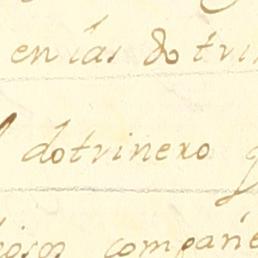 en las dotri
dotrinero q
compañe